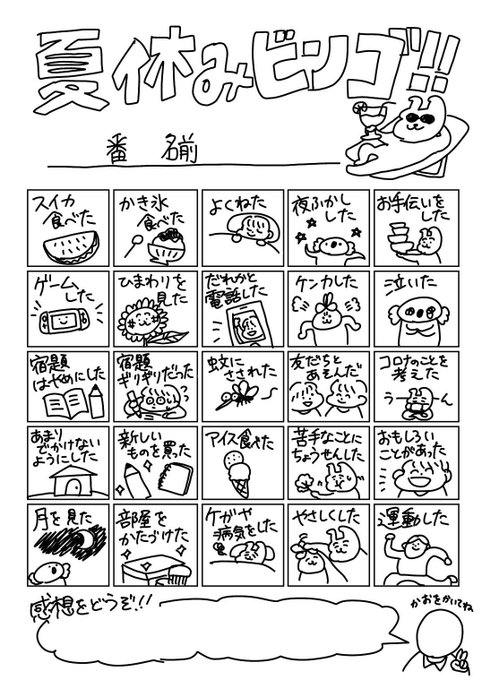 夏休みビンゴ!!!
番 名前
スイカ
食べた
かき氷
食べた
よくねた
夜ふかし
した
お手伝いを
した
ゲーム
した
ひまわりを
見た
だれかと
電話した
ケンカした
泣いた
宿題
はやめにした
宿題
ギリギリだった
蚊に
さされた
友だちと
あそんだ
コロナのことを
考えた
うーーん
あまり
でかけない
ようにした
新しい
ものを買った
アイス食べた
苦手なことに
ちょうせんした
おもしろい
ことがあった
月を見た
部屋を
かたづけた
ケガや
病気をした
やさしくした
運動した
感想をどうぞ!!
かおをかいてね